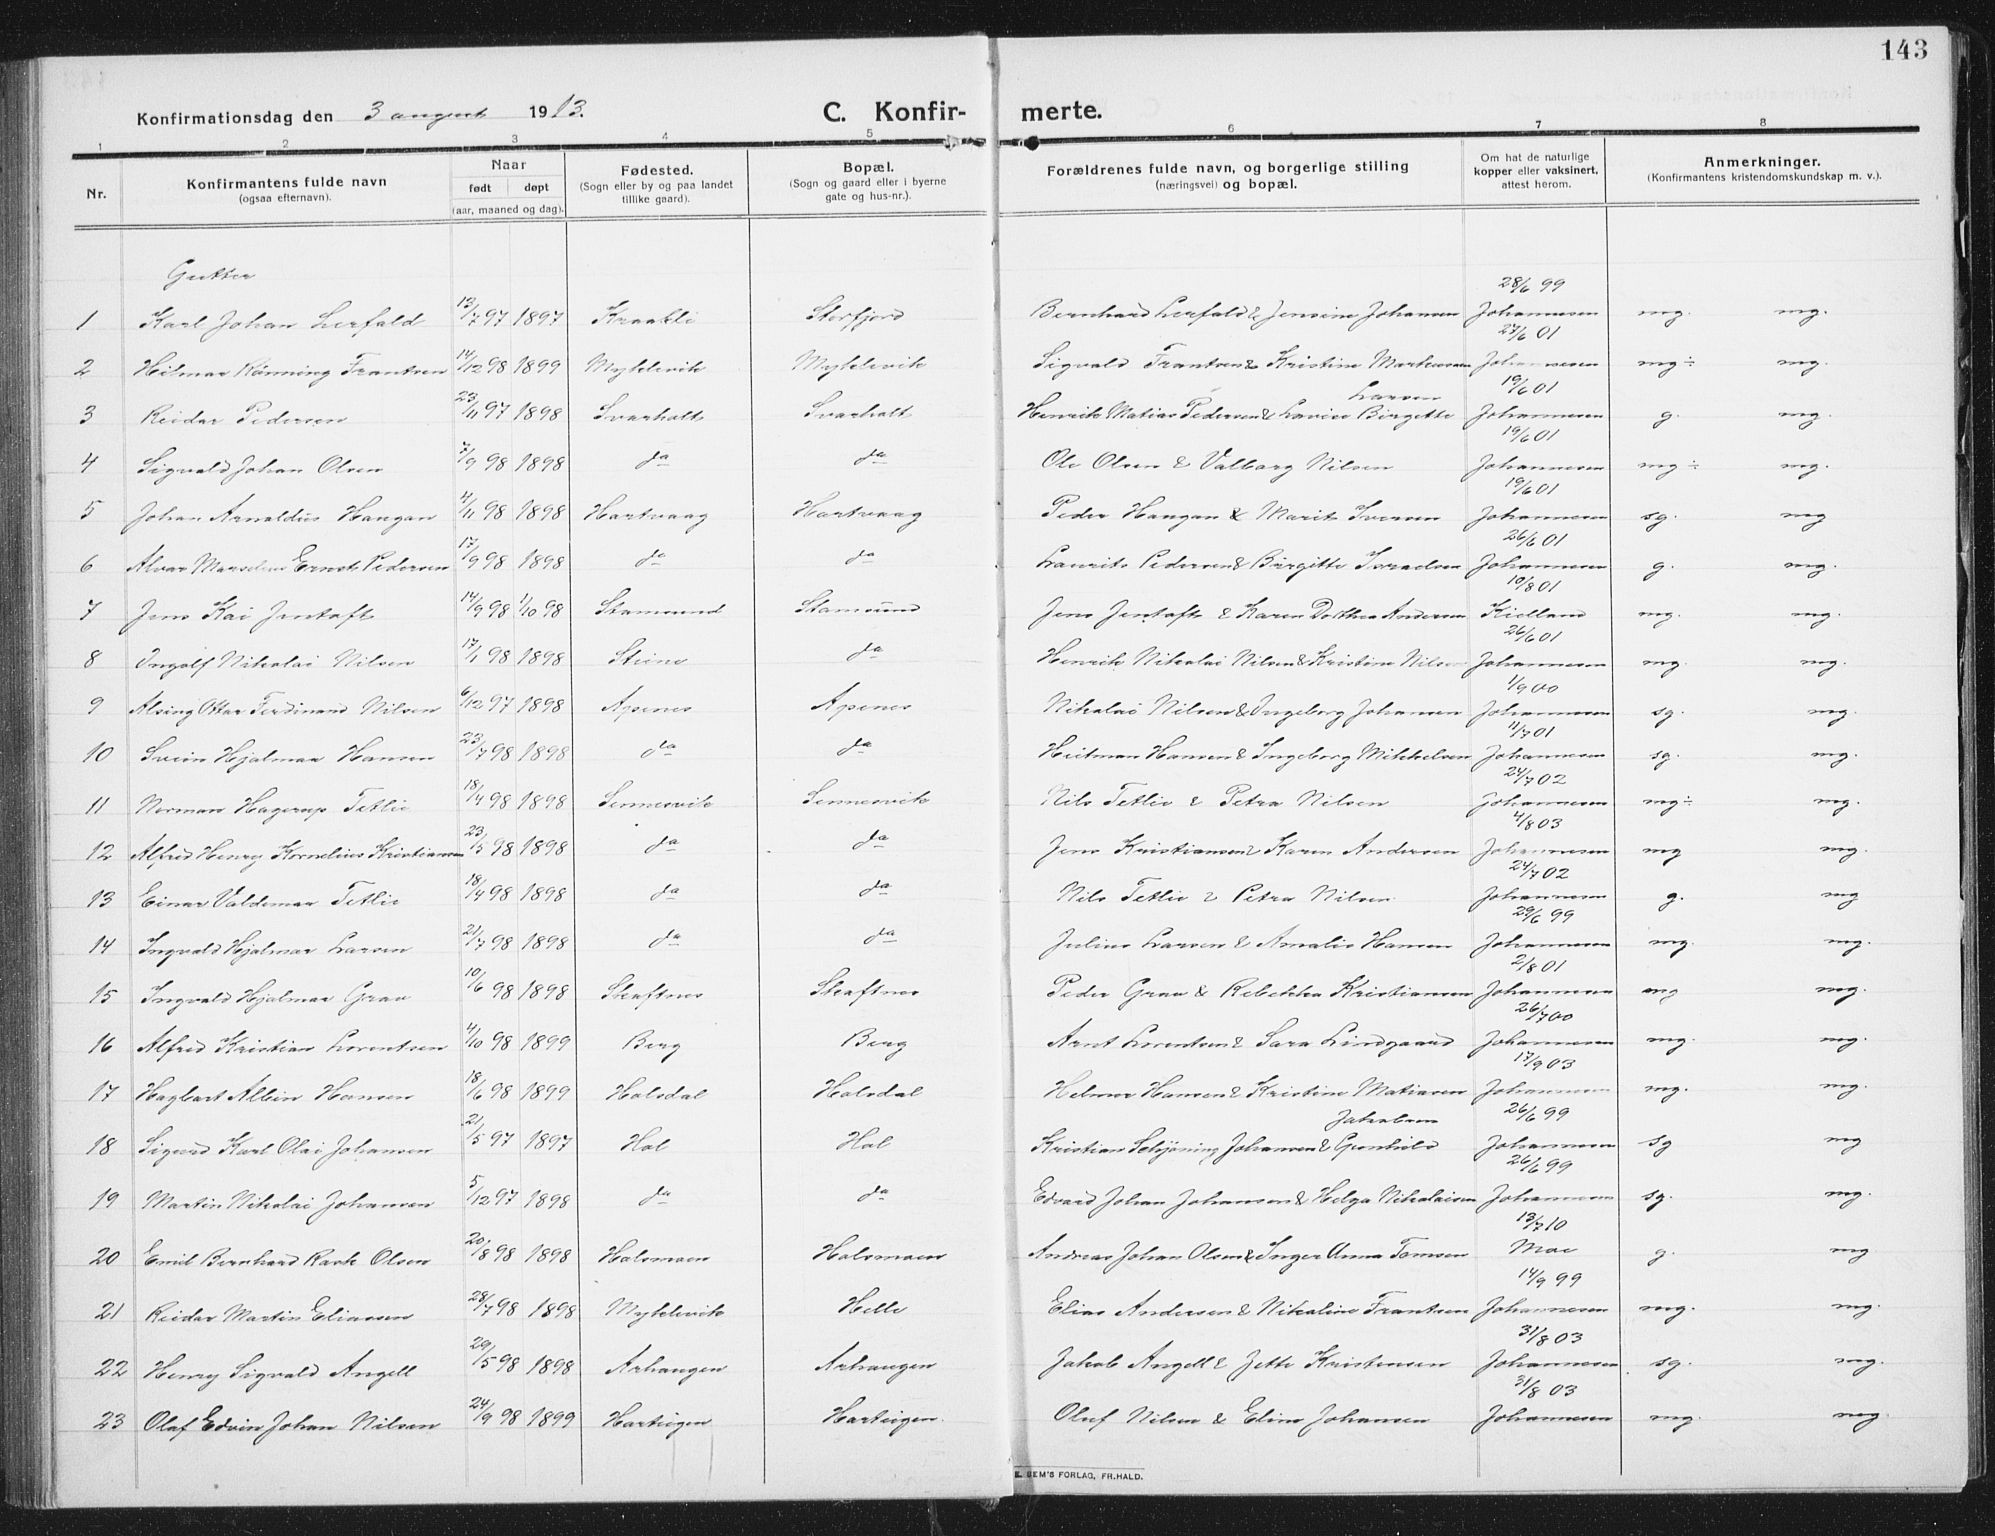 143
Konfirmationsdag den 3 august 1913. C. Konfirmerte.
1 2 3 4 5 6 7 8
Nr. Konfirmantens fulde navn (ogsaa efternavn). Naar født døpt (aar, maaned og dag). Fødested. (Sogn eller by og paa landet tillike gaard). Bopæl. (Sogn og gaard eller i byerne gate og hus-nr.). Forældrenes fulde navn, og borgerlige stilling (næringsvei) og bopæl. Om hat de naturlige kopper eller vaksinert, attest herom. Anmerkninger. (Konfirmantens kristendomskundskap m. v.).
Gutter
28/6 99
1 Karl Johan Lerfald 13/7 97 1897 Kraakli Storfjord Bernhard Lerfald & Jensine Johansen Johannesen mg. mg.
27/6 01
2 Hilmar Rønning Frantsen 14/12 98 1899 Myklevik Myklevik Sigvald Frantsen & Kristine Markussen Johannesen mg÷ mg.
Larsen 19/6 01
3 Reidar Pedersen 23/11 97 1898 Svarholt Svarholt Henrik Matias Pedersen & Lavise Birgette Johannesen g. mg.
19/6 01
4 Sigvald Johan Olsen 7/9 98 1898 da da Ole Olsen & Valborg Nilsen Johannesen mg÷ mg.
19/6 01
5 Johan Arnaldus Haugan 4/11 98 1898 Hartvaag Hartvaag Peder Haugan & Marit Iversen Johannesen sg. mg
26/6 01
6 Alvar Marselius Ernst Pedersen 17/9 98 1898 da da Laurits Pedersen & Birgitte Israelsen Johannesen g. mg.
10/8 01
7 Jens Kai Jentoft 14/9 98 1/10 98 Stamsund Stamsund Jens Jentoft & Karen Dorthea Andersen Kielland mg. mg.
26/6 01
8 Ingolf Nikolai Nilsen 17/1 98 1898 Steine da Henrik Nikolai Nilsen & Kristine Nilsen Johannesen mg. mg.
1/9 00
9 Alsing Ottar Ferdinand Nilsen 6/12 97 1898 Apenes Apenes Nikolai Nilsen & Ingeborg Johansen Johannesen sg. mg.
11/7 01
10 Svein Hjalmar Hansen 23/7 98 1898 da da Heitman Hansen & Ingeborg Mikkelsen Johannesen sg. mg.
24/7 02
11 Norman Hagerup Tetlie 18/4 98 1898 Sennesvik Sennesvik Nils Tetlie & Petra Nilsen Johannesen mg÷ mg.
4/8 03
12 Alfred Henry Kornelius Kristiansen 23/5 98 1898 da da Jens Kristiansen & Karen Andersen Johannesen mg mg.
24/7 02
13 Einar Valdemar Tetlie 18/4 98 1898 da da Nils Tetlie & Petra Nilsen Johannesen g. mg
29/6 99
14 Ingvald Hjalmar Larsen 21/7 98 1898 da da Julius Larsen & Amalie Hansen Johannesen mg. mg.
2/8 01
15 Ingvald Hjalmar Grav 10/6 98 1898 Skaftnes Skaftnes Peder Grav & Rebekka Kristiansen Johannesen mg mg.
26/7 00
16 Alfred Kristian Lorentsen 4/10 98 1899 Berg Berg Arnt Lorentsen & Sara Lindgaard Johannesen mg. mg.
17/9 03
17 Hagbart Albin Hansen 18/6 98 1899 Holsdal Holsdal Helmer Hansen & Kristine Matiasen Johannesen mg. mg.
Jakobsen 26/6 99
18 Sigurd Karl Olai Johansen 21/5 97 1897 Hol Hol Kristian Schjøning Johansen & Gunhild Johannesen sg mg
26/6 99
19 Martin Nikolai Johansen 5/12 97 1898 da da Edvard Johan Johansen & Helga Nikolaisen Johannesen sg. mg.
13/7 10
20 Emil Bernhard Rask Olsen 20/8 98 1898 Holsmoen Holsmoen Andreas Johan Olsen & Inger Anna Tomsen Moe g. mg
14/9 99
21 Reidar Martin Eliassen 28/7 98 1898 Myklevik Helle Elias Andersen & Nikoline Frantsen Johannesen mg. mg.
31/8 03
22 Henry Sigvald Angell 29/5 98 1898 Arhaugen Arhaugen Jakob Angell & Jette Kristensen Johannesen sg. mg.
31/8 03
23 Olaf Edvin Johan Nilsen 24/9 98 1899 Hartvigen Hartvigen. Oluf Nilsen & Eline Johansen Johannesen mg. mg.
E. SEM'S FORLAG, FR.HALD.